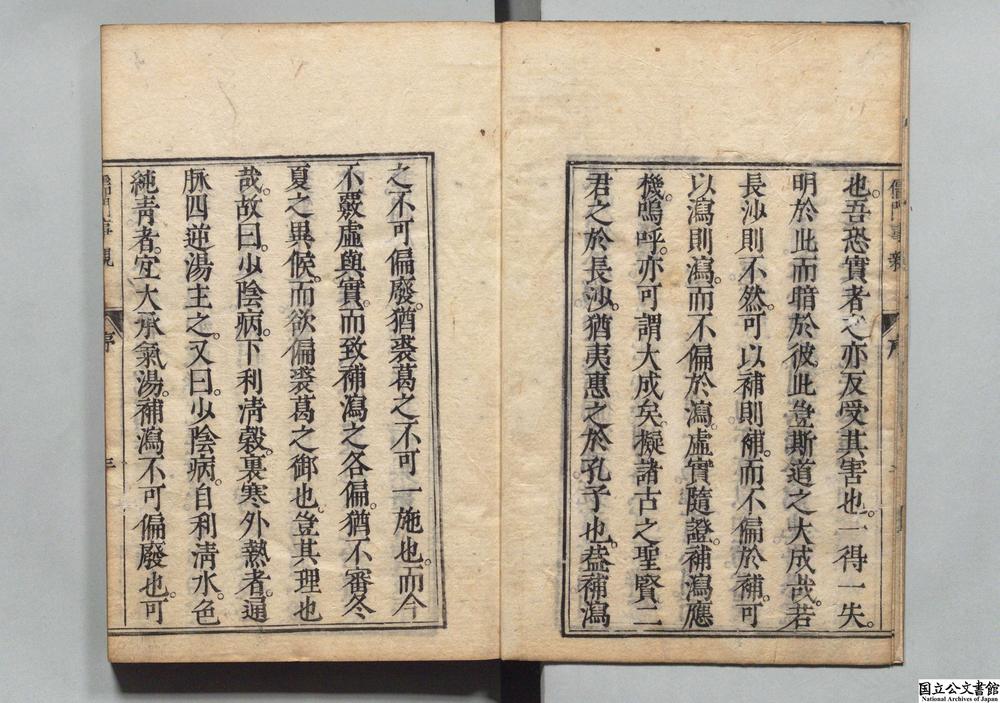 儒門事親
序
也。吾恐實者之亦反受其害也。一得一失。
明於此而暗於彼。此豈斯道之大成哉。若
長沙則不然。可以補則補。而不偏於補。可
以瀉則瀉。而不偏於瀉。虛實隨證。補瀉應
機。嗚呼。亦可謂大成矣。擬諸古之聖賢。二
君之於長沙。猶夷惠之於孔子也。葢補瀉
之不可偏廢。猶裘葛之不可一施也。而今
不覈虛與實。而致補瀉之各偏。猶不審冬
夏之異候。而欲偏裘葛之御也。豈其理也
哉。故曰。少陰病。下利清穀。裏寒外熱者。通
脉四逆湯主之。又曰。少陰病。自利清水。色
純青者。宜大承氣湯。補瀉不可偏廢也。可
儒門事親
序
三
国立公文書館
National Archives of Japan